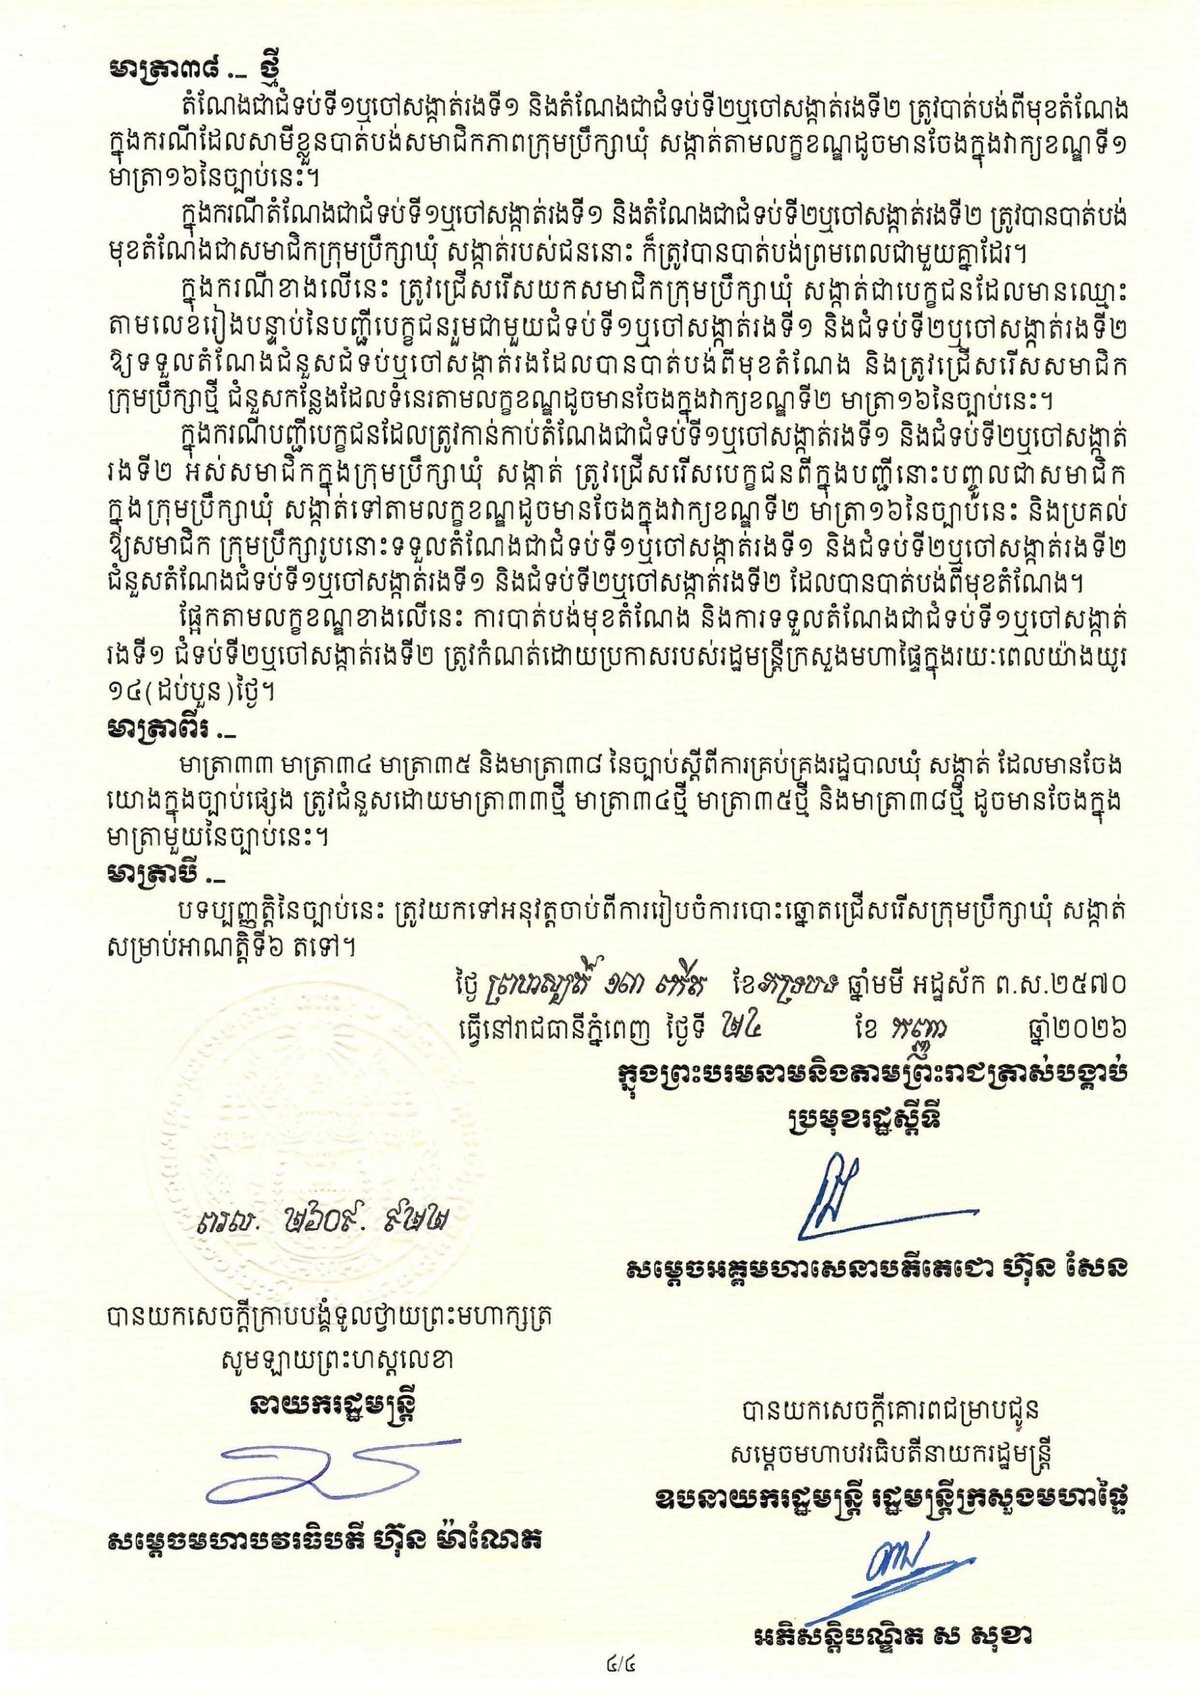 មាត្រា៣៨ ._ ថ្មី
តំណែងជាជំទប់ទី១ឬចៅសង្កាត់រងទី១ និងតំណែងជាជំទប់ទី២ឬចៅសង្កាត់រងទី២ ត្រូវបាត់បង់ពីមុខតំណែង
ក្នុងករណីដែលសាមីខ្លួនបាត់បង់សមាជិកភាពក្រុមប្រឹក្សាឃុំ សង្កាត់តាមលក្ខខណ្ឌដូចមានចែងក្នុងវាក្យខណ្ឌទី១
មាត្រា១៦នៃច្បាប់នេះ។
ក្នុងករណីតំណែងជាជំទប់ទី១ឬចៅសង្កាត់រងទី១ និងតំណែងជាជំទប់ទី២ឬចៅសង្កាត់រងទី២ ត្រូវបានបាត់បង់
មុខតំណែងជាសមាជិកក្រុមប្រឹក្សាឃុំ សង្កាត់របស់ជននោះ ក៏ត្រូវបានបាត់បង់ព្រមពេលជាមួយគ្នាដែរ។
ក្នុងករណីខាងលើនេះ ត្រូវជ្រើសរើសយកសមាជិកក្រុមប្រឹក្សាឃុំ សង្កាត់ជាបេក្ខជនដែលមានឈ្មោះ
តាមលេខរៀងបន្ទាប់នៃបញ្ជីបេក្ខជនរួមជាមួយជំទប់ទី១ឬចៅសង្កាត់រងទី១ និងជំទប់ទី២ឬចៅសង្កាត់រងទី២
ឱ្យទទួលតំណែងជំនួសជំទប់ឬចៅសង្កាត់រងដែលបានបាត់បង់ពីមុខតំណែង និងត្រូវជ្រើសរើសសមាជិក
ក្រុមប្រឹក្សាថ្មី ជំនួសកន្លែងដែលទំនេរតាមលក្ខខណ្ឌដូចមានចែងក្នុងវាក្យខណ្ឌទី២ មាត្រា១៦នៃច្បាប់នេះ។
ក្នុងករណីបញ្ជីបេក្ខជនដែលត្រូវកាន់កាប់តំណែងជាជំទប់ទី១ឬចៅសង្កាត់រងទី១ និងជំទប់ទី២ឬចៅសង្កាត់
រងទី២ អស់សមាជិកក្នុងក្រុមប្រឹក្សាឃុំ សង្កាត់ ត្រូវជ្រើសរើសបេក្ខជនពីក្នុងបញ្ជីនោះបញ្ចូលជាសមាជិក
ក្នុងក្រុមប្រឹក្សាឃុំ សង្កាត់ទៅតាមលក្ខខណ្ឌដូចមានចែងក្នុងវាក្យខណ្ឌទី២ មាត្រា១៦នៃច្បាប់នេះ និងប្រគល់
ឱ្យសមាជិក ក្រុមប្រឹក្សារូបនោះទទួលតំណែងជាជំទប់ទី១ឬចៅសង្កាត់រងទី១ និងជំទប់ទី២ឬចៅសង្កាត់រងទី២
ជំនួសតំណែងជំទប់ទី១ឬចៅសង្កាត់រងទី១ និងជំទប់ទី២ឬចៅសង្កាត់រងទី២ ដែលបានបាត់បង់ពីមុខតំណែង។
ផ្អែកតាមលក្ខខណ្ឌខាងលើនេះ ការបាត់បង់មុខតំណែង និងការទទួលតំណែងជាជំទប់ទី១ឬចៅសង្កាត់
រងទី១ ជំទប់ទី២ឬចៅសង្កាត់រងទី២ ត្រូវកំណត់ដោយប្រកាសរបស់រដ្ឋមន្ត្រីក្រសួងមហាផ្ទៃក្នុងរយៈពេលយ៉ាងយូរ
១៤(ដប់បួន)ថ្ងៃ។
មាត្រាពីរ ._
មាត្រា៣៣ មាត្រា៣៤ មាត្រា៣៥ និងមាត្រា៣៨ នៃច្បាប់ស្តីពីការគ្រប់គ្រងរដ្ឋបាលឃុំ សង្កាត់ ដែលមានចែង
យោងក្នុងច្បាប់ផ្សេង ត្រូវជំនួសដោយមាត្រា៣៣ថ្មី មាត្រា៣៤ថ្មី មាត្រា៣៥ថ្មី និងមាត្រា៣៨ថ្មី ដូចមានចែងក្នុង
មាត្រាមួយនៃច្បាប់នេះ។
មាត្រាបី ._
បទប្បញ្ញត្តិនៃច្បាប់នេះ ត្រូវយកទៅអនុវត្តចាប់ពីការរៀបចំការបោះឆ្នោតជ្រើសរើសក្រុមប្រឹក្សាឃុំ សង្កាត់
សម្រាប់អាណត្តិទី៦ តទៅ។
ថ្ងៃ ព្រហស្បតិ៍ ១៣ កើត ខែភទ្របទ ឆ្នាំមមី អដ្ឋស័ក ព.ស.២៥៧០
ធ្វើនៅរាជធានីភ្នំពេញ ថ្ងៃទី ២៤ ខែ កញ្ញា ឆ្នាំ២០២៦
ក្នុងព្រះបរមនាមនិងតាមព្រះរាជត្រាស់បង្គាប់
ប្រមុខរដ្ឋស្តីទី
ពរល. ២៦០៩. ៩២២
សម្តេចអគ្គមហាសេនាបតីតេជោ ហ៊ុន សែន
បានយកសេចក្តីក្រាបបង្គំទូលថ្វាយព្រះមហាក្សត្រ
សូមឡាយព្រះហស្តលេខា
នាយករដ្ឋមន្ត្រី
បានយកសេចក្តីគោរពជម្រាបជូន
សម្តេចមហាបវរធិបតីនាយករដ្ឋមន្ត្រី
ឧបនាយករដ្ឋមន្ត្រី រដ្ឋមន្ត្រីក្រសួងមហាផ្ទៃ
សម្តេចមហាបវរធិបតី ហ៊ុន ម៉ាណែត
អភិសន្តិបណ្ឌិត ស សុខា
៤/៤